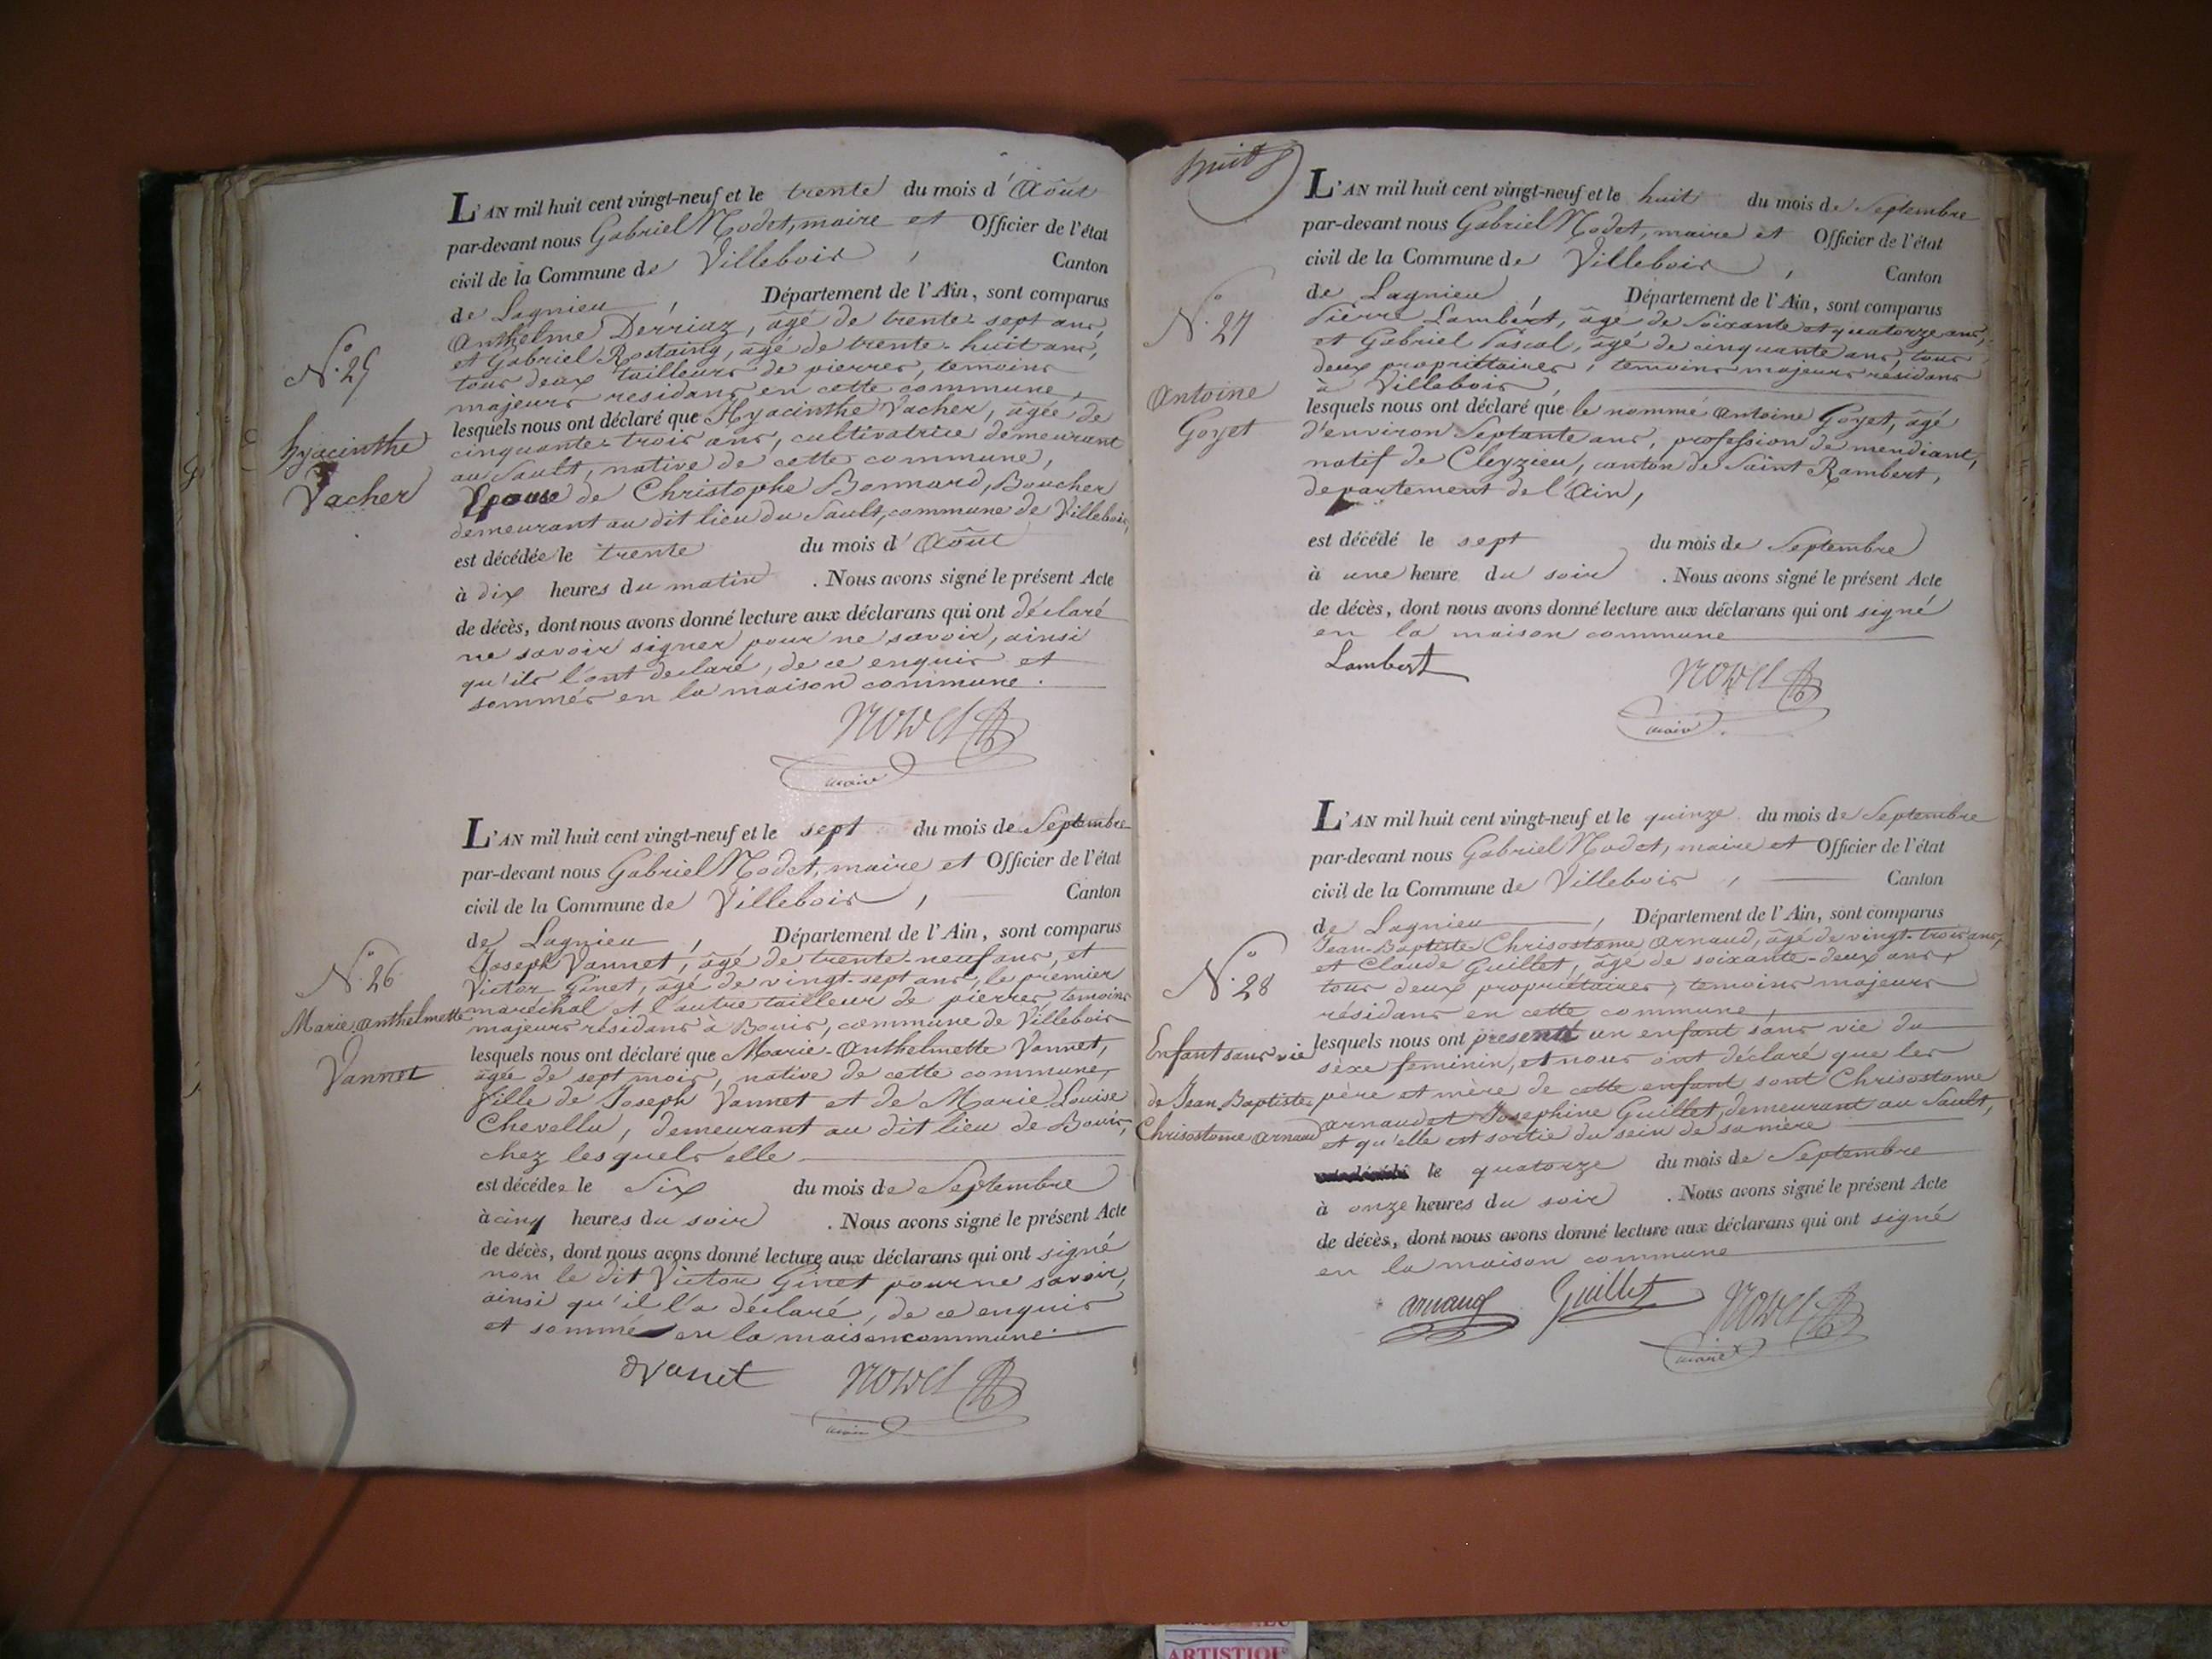 L'AN mil huit cent vingt-neuf et le trente du mois d'Août
par-devant nous Gabriel Nodet, maire et Officier de l'état
civil de la Commune de Villebois, Canton
de Lagnieu, Département de l'Ain, sont comparus
Anthelme Derriaz, âgé de trente-sept ans,
et Gabriel Rostaing, âgé de trente-huit ans,
tous deux tailleurs de pierres, temoins
majeurs residans en cette commune,
lesquels nous ont déclaré que Hyacinthe Vacher, âgée de
cinquante-trois ans, cultivatrice demeurant
au Sault, native de cette commune,
Epouse de Christophe Bonnard, Boucher
demeurant au dit lieu du Sault, commune de Villebois,
est décédée le trente du mois d'Août
à dix heures du matin. Nous avons signé le présent Acte
de décès, dont nous avons donné lecture aux déclarans qui ont déclaré
ne savoir signer pour ne savoir, ainsi
qu'ils l'ont declaré, de ce enquis et
sommés en la maison commune.
maire
N°. 25
hyacinthe
Vacher
L'AN mil huit cent vingt-neuf et le sept du mois de Septembre
par-devant nous Gabriel Nodet, maire et Officier de l'état
civil de la Commune de Villebois, Canton
de Lagnieu, Département de l'Ain, sont comparus
Joseph Vannet, âgé de trente-neuf ans, et
Victor Ginet, âgé de vingt-sept ans, le premier
maréchal et l'autre tailleur de pierres, temoins
majeurs résidans à Bouis, commune de Villebois
lesquels nous ont déclaré que Marie-Anthelmette Vannet,
âgée de sept mois, native de cette commune,
fille de Joseph Vannet et de Marie Louise
Chevellu, demeurant au dit lieu de Bouis,
chez lesquels elle
est décédée le Six du mois de Septembre
à cinq heures du soir. Nous avons signé le présent Acte
de décès, dont nous avons donné lecture aux déclarans qui ont signé
non le dit Victor Ginet pour ne savoir,
ainsi qu'il l'a déclaré, de ce enquis
et sommé en la maison commune.
maire
N°. 26
Marie Anthelmette
Vannet
huit
L'AN mil huit cent vingt-neuf et le huit du mois de Septembre
par-devant nous Gabriel Nodet, maire et Officier de l'état
civil de la Commune de Villebois, Canton
de Lagnieu, Département de l'Ain, sont comparus
Pierre Lambert, âgé de Soixante et quatorze ans,
et Gabriel Pascal, âgé de cinquante ans, tous
deux propriétaires, temoins majeurs résidans
à Villebois,
lesquels nous ont déclaré que le nommé Antoine Goyet, âgé
d'environ Septante ans, profession de mendiant,
natif de Cleyzieu, canton de Saint Rambert,
departement de l'Ain,
est décédé le sept du mois de Septembre
à une heure du soir. Nous avons signé le présent Acte
de décès, dont nous avons donné lecture aux déclarans qui ont signé
en la maison commune
Lambert
maire
N°. 27
Antoine
Goyet
L'AN mil huit cent vingt-neuf et le quinze du mois de Septembre
par-devant nous Gabriel Nodet, maire et Officier de l'état
civil de la Commune de Villebois, Canton
de Lagnieu, Département de l'Ain, sont comparus
Jean-Baptiste Chrisostome Arnaud, âgé de vingt-trois ans,
et Claude Guillet, âgé de soixante-deux ans,
tous deux propriétaires, temoins majeurs
résidans en cette commune,
lesquels nous ont presenté un enfant sans vie du
sèxe feminin, et nous ont déclaré que les
père et mère de cette enfant sont Chrisostome
Arnaud et Josephine Guillet, demeurant au Sault,
et qu'elle est sortie du sein de sa mère
le quatorze du mois de Septembre
à onze heures du soir. Nous avons signé le présent Acte
de décès, dont nous avons donné lecture aux déclarans qui ont signé
en la maison commune
Arnaud Guillet
maire
N°. 28
Enfant sans vie
de Jean Baptiste
Chrisostome Arnaud
ARTISTIQUE